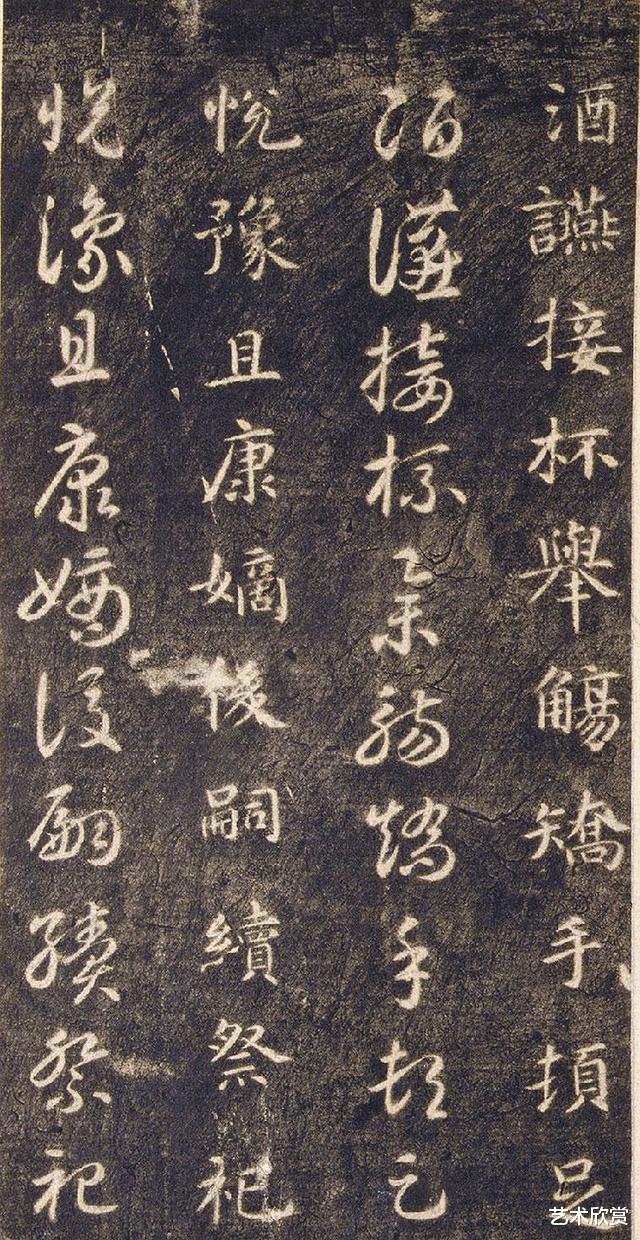 酒讌接杯舉觴矯手頓足
酒讌接杯舉觴矯手頓足
悅豫且康嫡後嗣續祭祀
悅豫且康嫡後嗣續祭祀
艺术欣赏